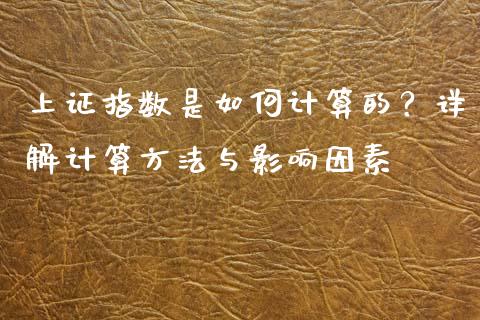 上证指数是如何计算的？详
解计算方法与影响因素